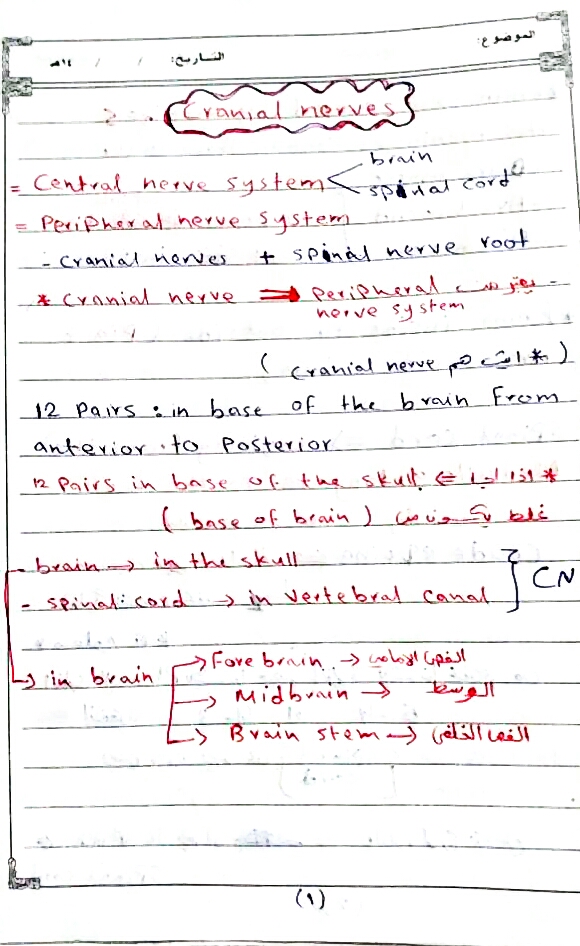 الموضوع:
التاريخ: / / ١٤هـ
Cranial nerves
= Central nerve system
brain
spinal cord
= Peripheral nerve system
- Cranial nerves + spinal nerve root
* Cranial nerve ⇒ Peripheral
nerve system
( Cranial nerve هم * )
12 Pairs : in base of the brain From
anterior to Posterior
* اذا اجا ⇐ 12 Pairs in base of the skull
غلط ( base of brain )
- brain → in the skull
- spinal cord → in vertebral canal
CNS
↳ in brain
→ Fore brain → الفص الامامي
→ Midbrain → الوسط
→ Brain stem → الفص الخلفي
(١)